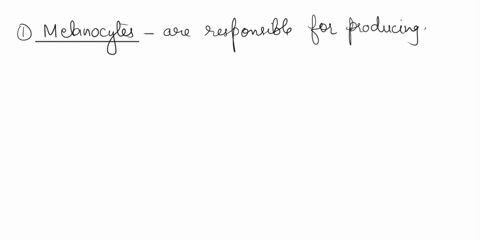 ① Melanocytes - are responsible for producing.